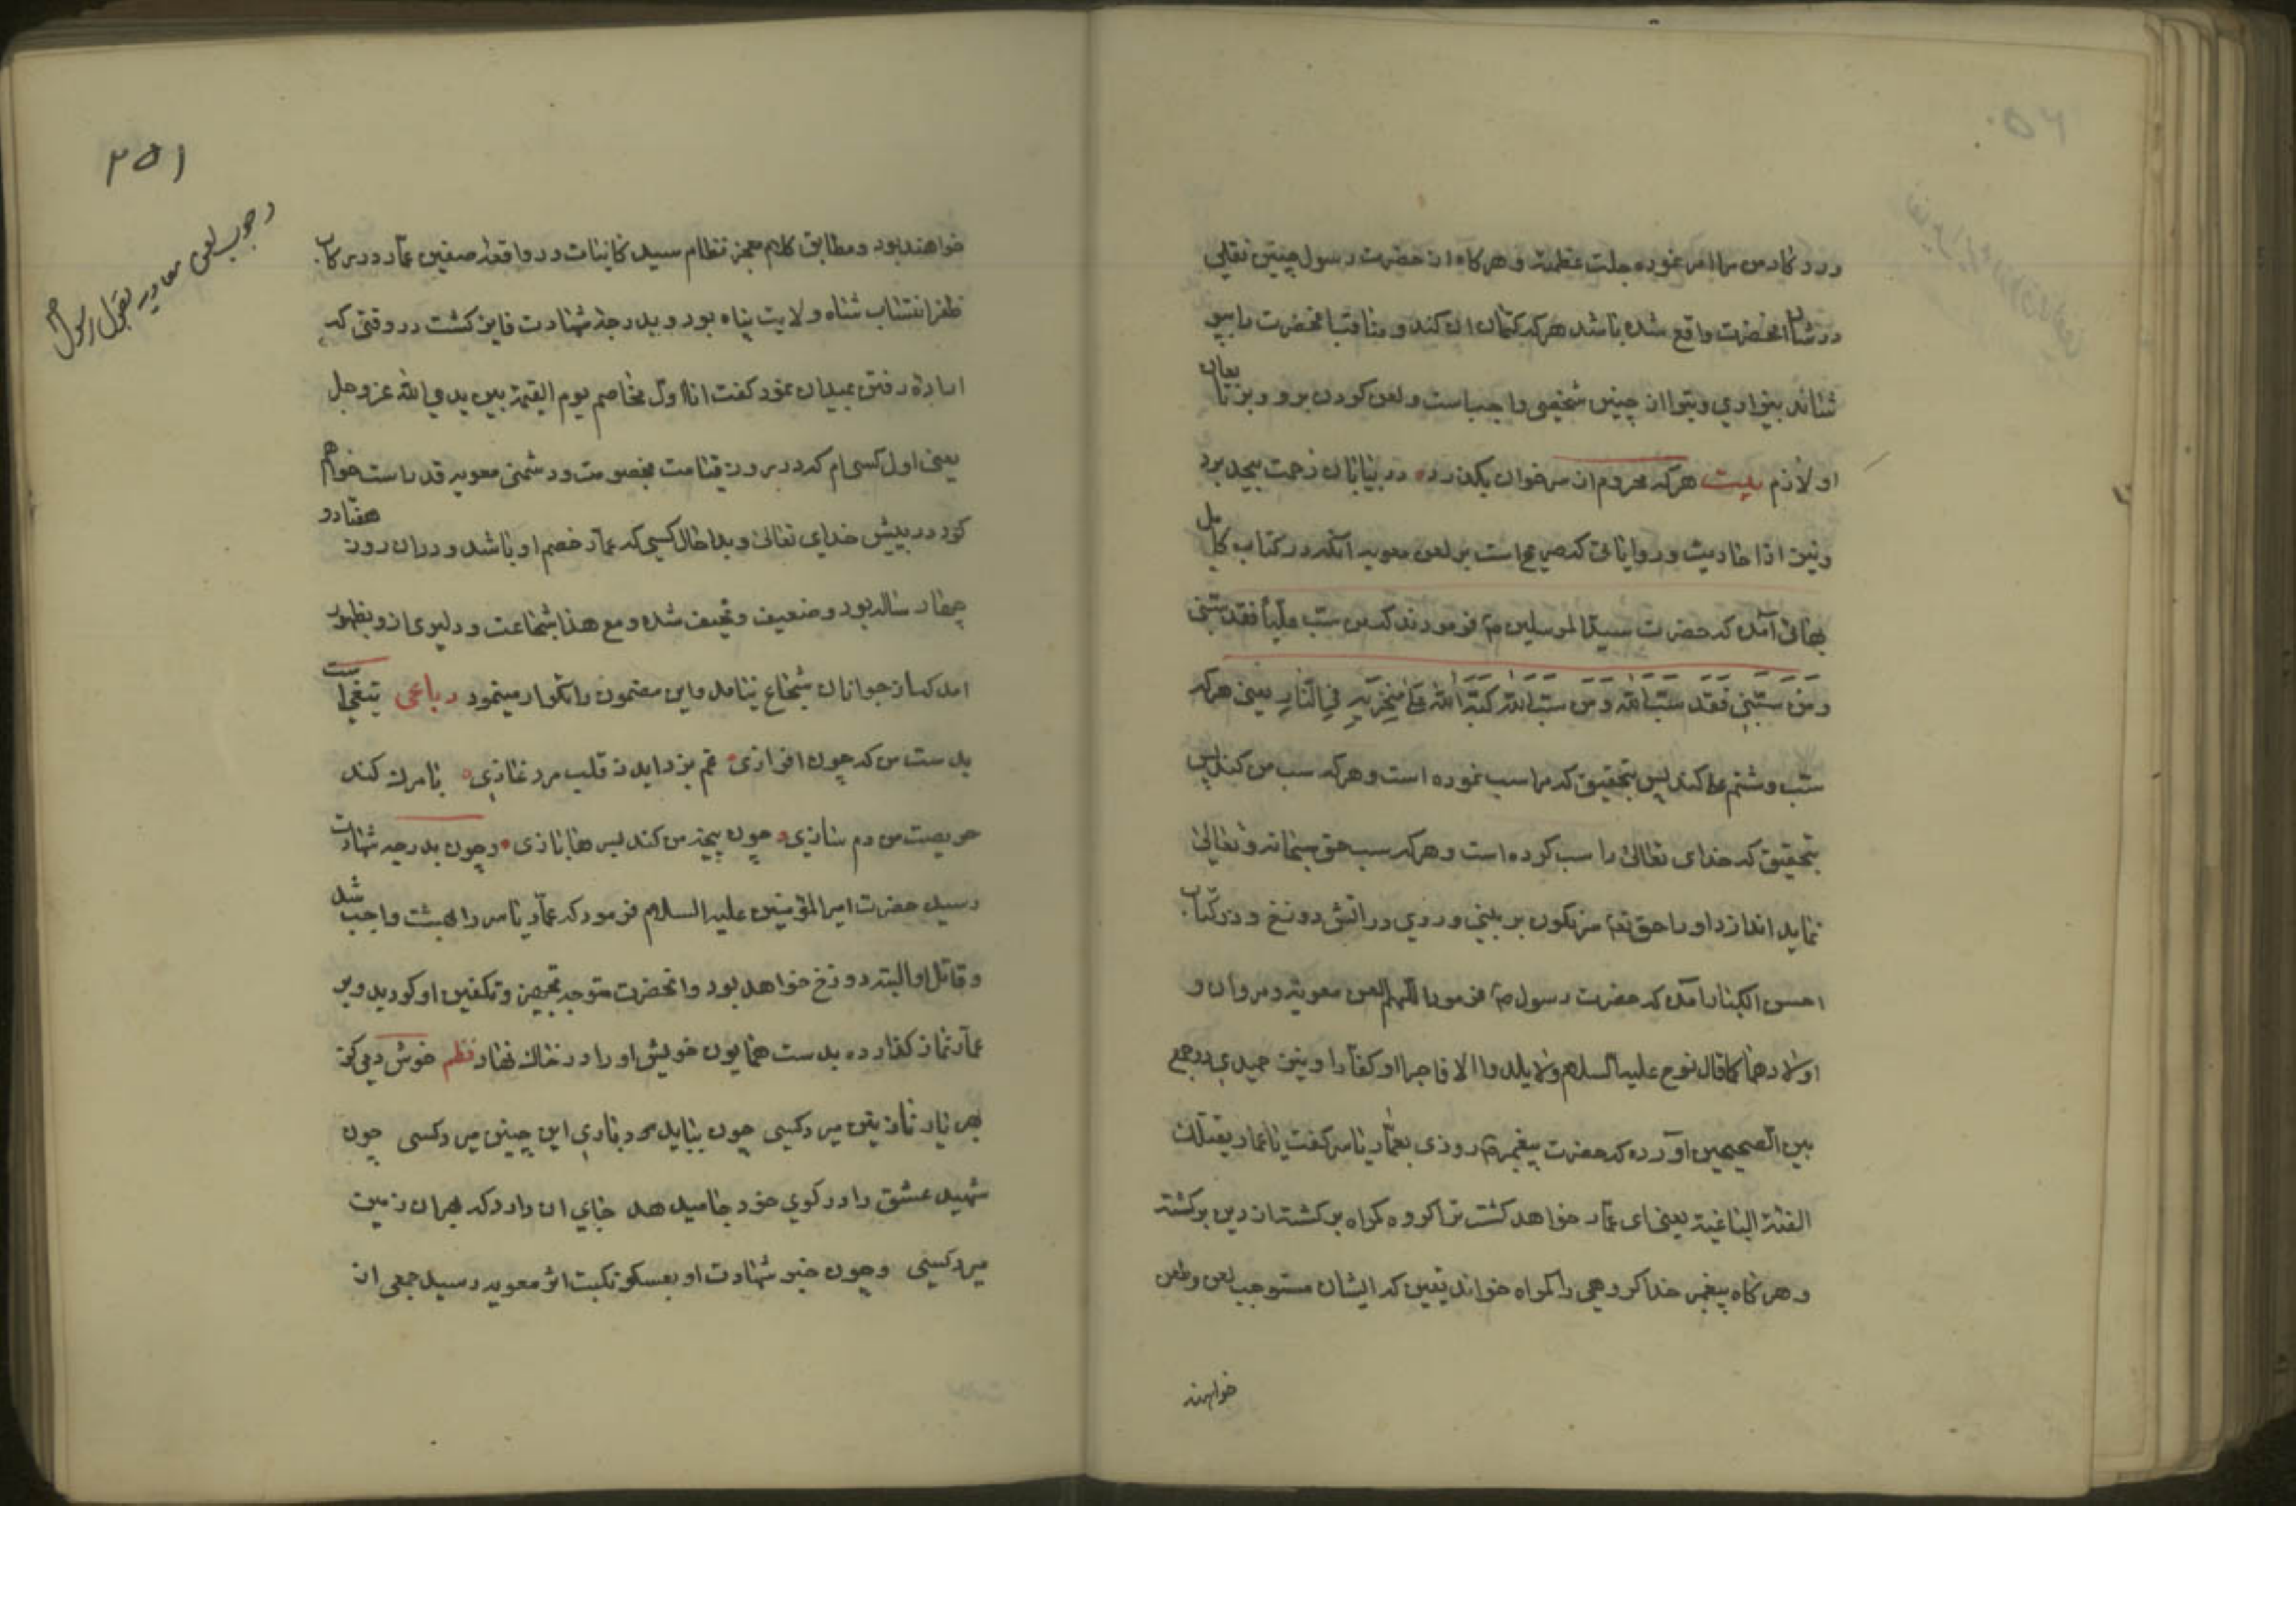 ورد کار من مرا امر نموده جلت عظمته و هرکاه از حضرت رسول چنین نقلی
در شان انحضرت واقع شده باشد هرکه کتمان ان کند و مناقب انحضرت را
شخصی واجبست و لعن کردن برو و برتابعان
او لازم بیت هرکه محروم از سر خوان بکذرد در بیابان زحمت بیحد برد
و نیز از احادیث و روایاتی که صریح است بر لعن معویه آنکه در کتاب کامل
بهائی آمده که حضرت سید المرسلین ص فرمودند که من سب علیا فقد سبنی
و من سبنی فقد سب الله و من سب الله کبه الله علی منخریه فی النار یعنی هرکه
سب و شتم علی کند پس بتحقیق که مرا سب نموده است و هرکه سب من کند پس
بتحقیق که خدای تعالی را سب کرده است و هرکه سب حق سبحانه و تعالی
نماید اندازد او را حق تع سرنکون بر بینی و روی در اتش دوزخ و در کتاب
احسن الکبار آمده که حضرت رسول ص فرمود اللهم العن معویة و مروان و
اولادهما کما قال نوح علیه السلام ولا یلدوا الا فاجرا او کفارا و نیز حمیدی در جمع
بین الصحیحین اورده که حضرت پیغمبر ص روزی بعمار یاسر کفت یا عمار یقتلک
الفئة الباغیة یعنی ای عمار خواهد کشت ترا کروه کمراه برکشته از دین برکشته
و هرکاه پیغمبر خدا کروهی را کمراه خواند یقین که ایشان مستوجب لعن و طعن
خواهند
۲۵۱
وجوب لعن معاویه بقول رسول ص
خواهند بود و مطابق کلام معجز نظام سید کاینات در واقعه صفین عمار در رکاب
ظفر انتساب شاه ولایت پناه بود و بدرجه شهادت فایز کشت در وقتی که
اراده رفتن بمیدان نمود کفت انا اول مخاصم یوم القیمة بین یدی الله عز وجل
یعنی اول کسی ام که در روز قیامت بخصومت و دشمنی معویه قد راست خواهم
کرد در پیش خدای تعالی و بدا حال کسی که عمار خصم او باشد و در ان روز هفتاد و
چهار ساله بود و ضعیف و نحیف شده و مع هذا شجاعت و دلیری ازو بظهور
امد که از جوانان شجاع نیامد و این مضمون را تکرار مینمود رباعی تیغی است
بدست من که چون افرازی غم بزداید ز قلب مرد غازی با مرک کند
حریصت من دم سازی چون بیخ من کند بسرها بازی و چون بدرجه شهادت
رسید حضرت امیر المؤمنین علیه السلام فرمود که عمار یاسر را بهشت واجب شد
و قاتل او البته دوزخ خواهد بود و انحضرت متوجه تجهیز و تکفین او کردید و بر
عمار نماز کذارده بدست همایون خویش او را در خاک نهاد نظم خوش دمی کز
بهر یار نازنین میرد کسی چون بباید مرد باری این چنین میرد کسی چون
شهید عشق را در کوی خود جا میدهد جای ان دارد که بهر ان زمین
میرد کسی و چون خبر شهادت او بعسکر نکبت اثر معویه رسید جمعی از